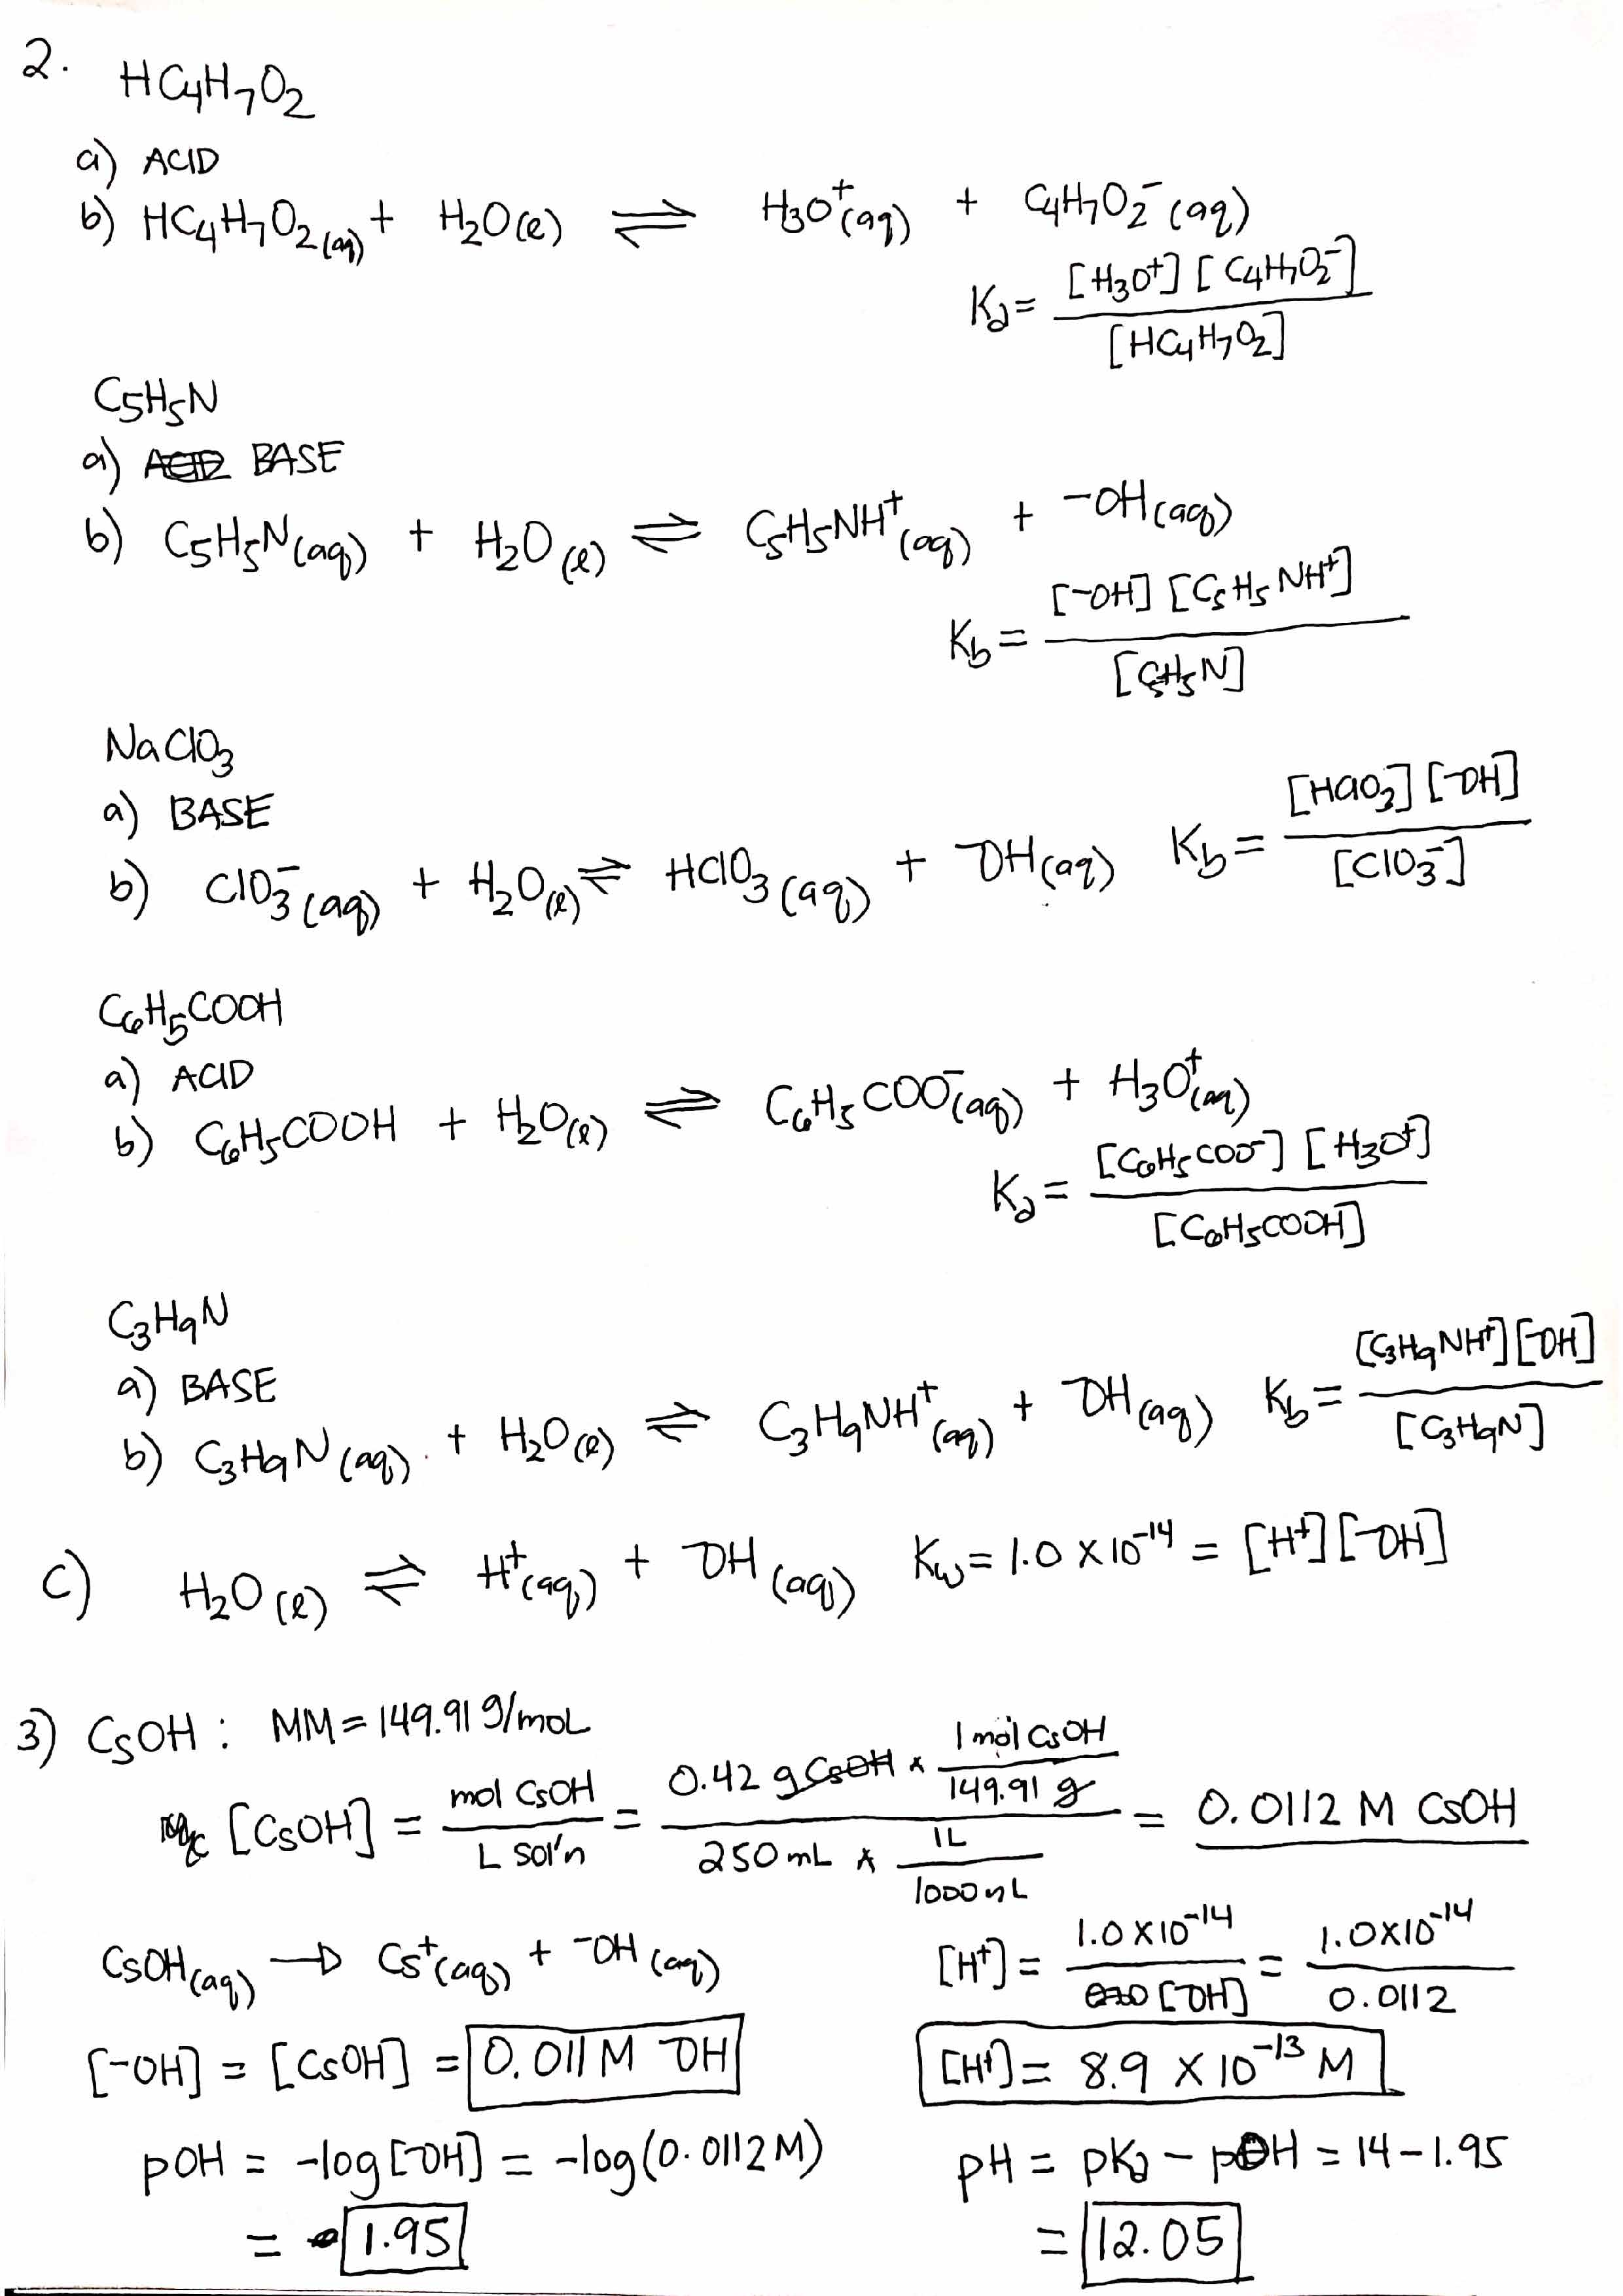 2. HC₄H₇O₂
a) ACID
b) HC₄H₇O₂(aq) + H₂O(l) ⇌ H₃O⁺(aq) + C₄H₇O₂⁻(aq)
Ka = [H₃O⁺][C₄H₇O₂⁻] / [HC₄H₇O₂]
C₅H₅N
a) BASE
b) C₅H₅N(aq) + H₂O(l) ⇌ C₅H₅NH⁺(aq) + ⁻OH(aq)
Kb = [⁻OH][C₅H₅NH⁺] / [C₅H₅N]
NaClO₃
a) BASE
b) ClO₃⁻(aq) + H₂O(l) ⇌ HClO₃(aq) + ⁻OH(aq) Kb = [HClO₃][⁻OH] / [ClO₃⁻]
C₆H₅COOH
a) ACID
b) C₆H₅COOH + H₂O(l) ⇌ C₆H₅COO⁻(aq) + H₃O⁺(aq)
Ka = [C₆H₅COO⁻][H₃O⁺] / [C₆H₅COOH]
C₃H₉N
a) BASE
b) C₃H₉N(aq) + H₂O(l) ⇌ C₃H₉NH⁺(aq) + ⁻OH(aq) Kb = [C₃H₉NH⁺][⁻OH] / [C₃H₉N]
c) H₂O(l) ⇌ H⁺(aq) + ⁻OH(aq) Kw = 1.0 x 10⁻¹⁴ = [H⁺][⁻OH]
3) CsOH : MM = 149.91 g/mol
[CsOH] = mol CsOH / L sol'n = 0.42 g CsOH x 1 mol CsOH / 149.91 g / 250 mL x 1L / 1000 mL = 0.0112 M CsOH
CsOH(aq) → Cs⁺(aq) + ⁻OH(aq)
[H⁺] = 1.0 x 10⁻¹⁴ / [⁻OH] = 1.0 x 10⁻¹⁴ / 0.0112
[⁻OH] = [CsOH] = 0.011 M ⁻OH
[H⁺] = 8.9 x 10⁻¹³ M
pOH = -log[⁻OH] = -log(0.0112 M)
= 1.95
pH = pKa - pOH = 14 - 1.95
= 12.05